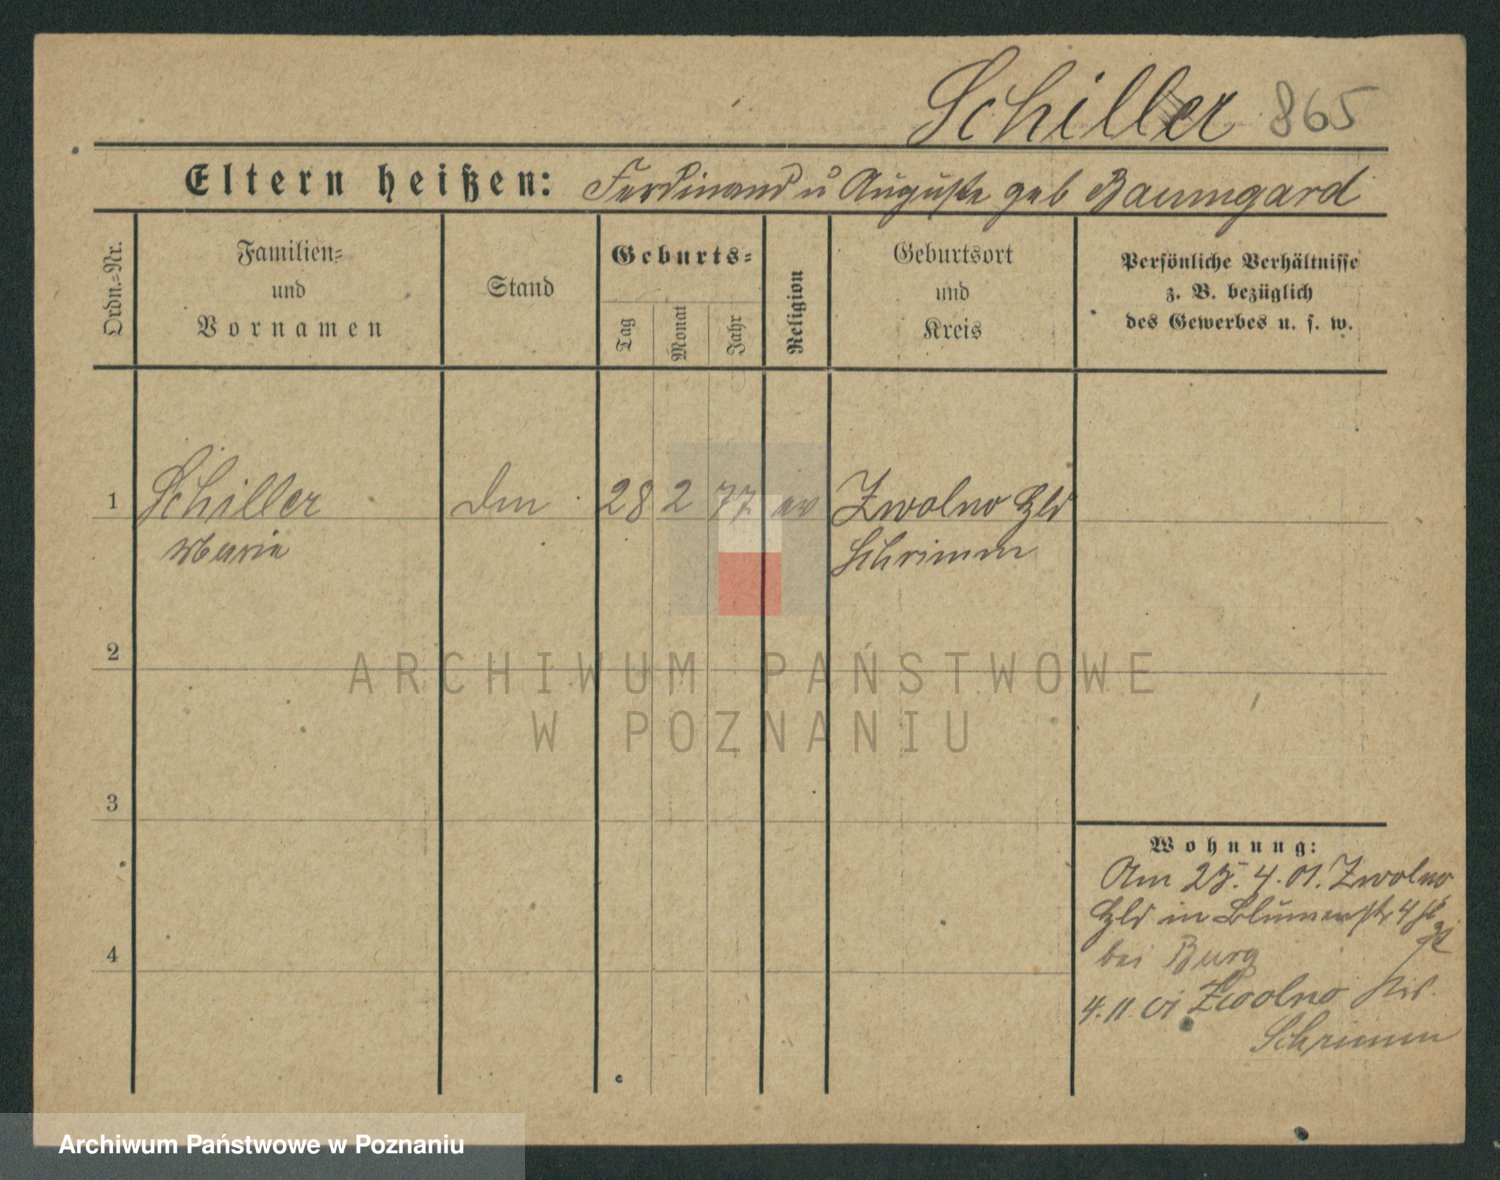 Schiller 865
Eltern heißen: Ferdinand u Auguste geb Baumgard
Ordn.-Nr.
Familien-
und
Vornamen
Stand
Geburts-
Tag
Monat
Jahr
Religion
Geburtsort
und
Kreis
Persönliche Verhältnisse
z. B. bezüglich
des Gewerbes u. s. w.
1 Schiller 28 2 77 ev Zwolno
Maria Schrimm
2
ARCHIWUM PAŃSTWOWE
W POZNANIU
3
Wohnung:
Am 25. 4. 01. Zwolno
in Blumenstr 4
bei Burg
4
4. 11. 01 Zwolno
Schrimm
Archiwum Państwowe w Poznaniu